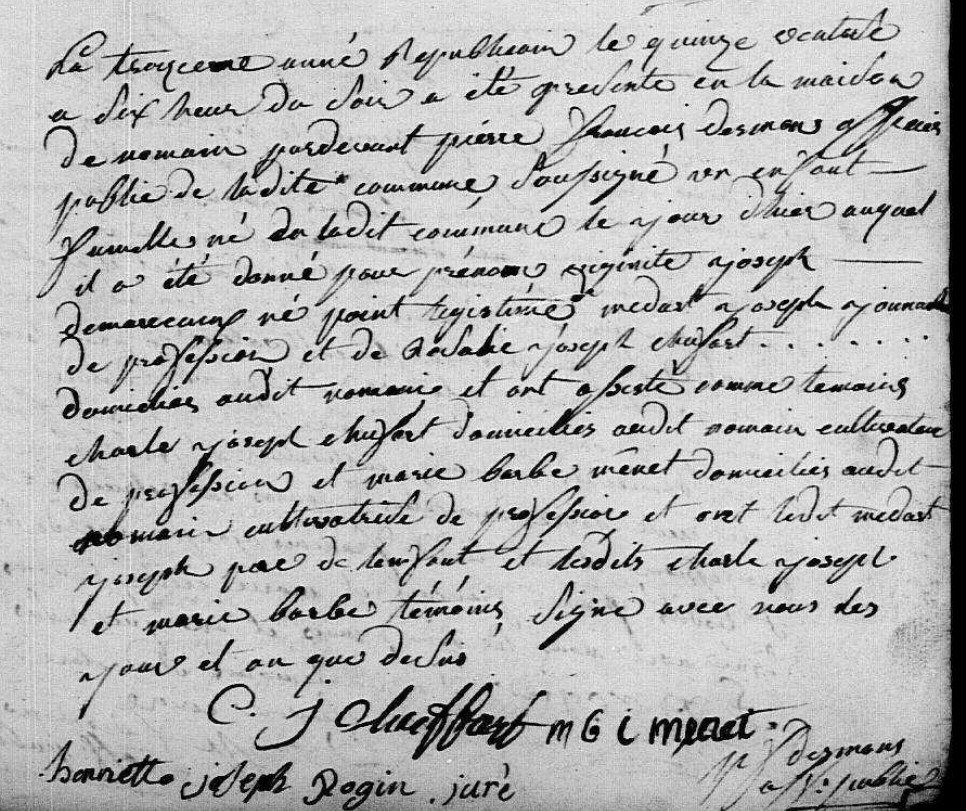 La troizeme anné Republicain le quinze ventose
a six heur du soir a été presenté en la maison
de romain pardevant pierre françois desmons officier
public de ladite commune soussigné un enfant
fumelle né en ladit commune le jour d'hier auquel
il a été donné pour prénom joseph
né point medart joseph
de profession et de Rosalie joseph chufart . . . . . . .
domicilies audit romain et ont assisté comme temoins
charle joseph chufart domicilies audit romain cultivateur
de profession et marie barbe menet domicilies audit
romain cultivatrice de profession et ont ledit medart
joseph pere de lenfant et lesdits charle joseph
et marie barbe témoins signé avec nous des
jour et an que desus
C. J chuffart m G C menet
henriette joseph Rogin . juré
desmons
public